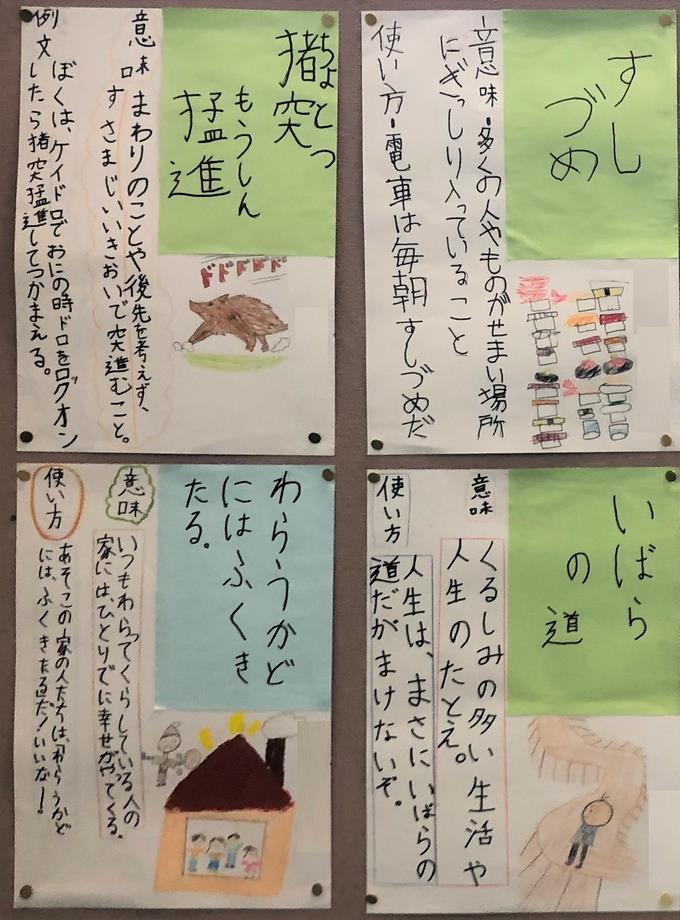 すし
づめ
意味・多くの人やものがせまい場所
にぎっしり入っていること
使い方・電車は毎朝すしづめだ
ちょとつ
猪突
もうしん
猛進
ドドドドド
意味
まわりのことや後先を考えず、
すさまじいいきおいで突進むこと。
例文
ぼくは、ケイドロでおにの時ドロをログオン
したら猪突猛進してつかまえる。
いばら
の道
意味
くるしみの多い生活や
人生のたとえ。
使い方
人生は、まさにいばらの
道だがまけないぞ。
わらうかど
にはふくき
たる。
意味
いつもわらってくらしている人の
家には、ひとりでに幸せがやってくる。
使い方
あそこの家の人たちは、「わらうかど
には、ふくきたる」だ!いいな!